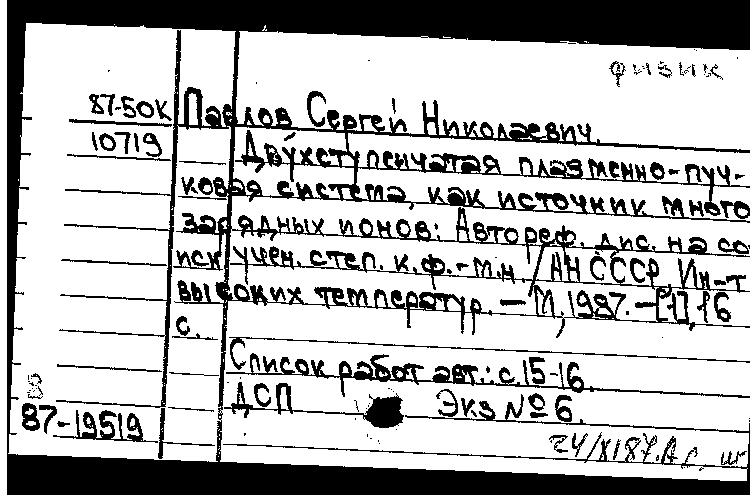 физик
87-50К Павлов Сергей Николаевич.
10719 Двухступенчатая плазменно-пуч-
ковая система, как источник много
зарядных ионов: Автореф. дис. на со
иск учен. степ. к.ф.-м.н. /АН СССР, Ин-т
высоких температур. — М, 1987. — [1], 16
с.
Список работ авт.: с. 15-16.
ДСП Экз № 6.
87-19519
24/XI87.